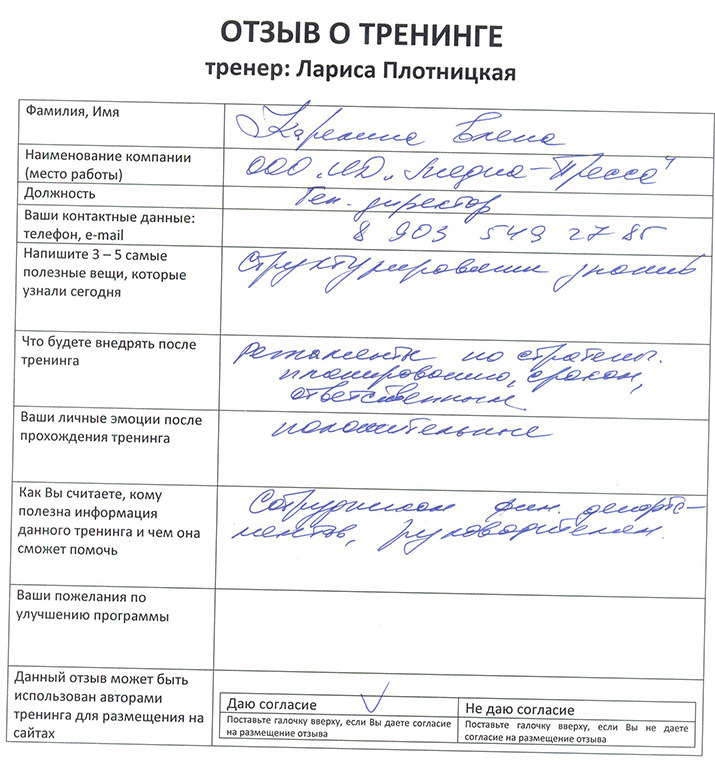 ОТЗЫВ О ТРЕНИНГЕ
тренер: Лариса Плотницкая
Фамилия, Имя
Карелина Елена
Наименование компании
(место работы)
ООО „ИД „Медиа-Пресса"
Должность
Ген. директор
Ваши контактные данные:
телефон, e-mail
8 903 549 27 85
Напишите 3 – 5 самые
полезные вещи, которые
узнали сегодня
структурирования знаний
Что будете внедрять после
тренинга
регламенты по стратегич.
планированию, срокам,
ответственным
Ваши личные эмоции после
прохождения тренинга
положительные
Как Вы считаете, кому
полезна информация
данного тренинга и чем она
сможет помочь
Сотрудникам фин. департа-
ментов, руководителям.
Ваши пожелания по
улучшению программы
Данный отзыв может быть
использован авторами
тренинга для размещения на
сайтах
Даю согласие
Поставьте галочку вверху, если Вы даете согласие
на размещение отзыва
Не даю согласие
Поставьте галочку вверху, если Вы не даете
согласие на размещение отзыва